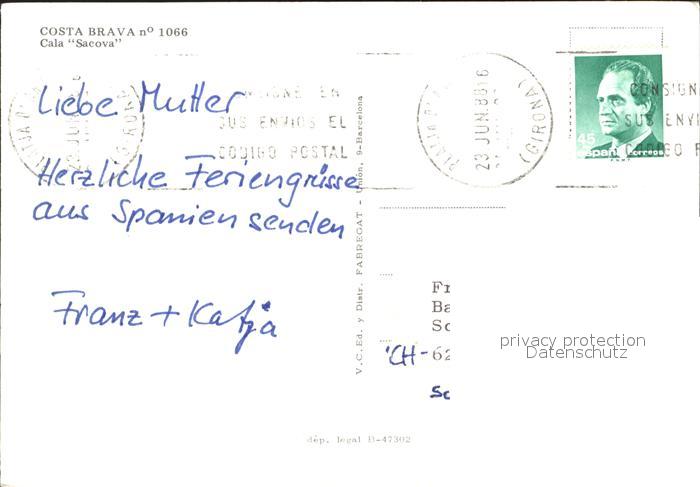 COSTA BRAVA nº 1066
Cala "Sacova"
Liebe Mutter
Herzliche Feriengrüsse
aus Spanien senden
Franz + Katja
CONSIGNE EN
SUS ENVIOS EL
CODIGO POSTAL
23 JUN.88 16
(GIRONA)
45
España Correos
CONSIGN
SUS ENVI
CODIGO P
V.C. Ed. y Distr. FABREGAT - Unión, 9-Barcelona
Fr
Ba
Sc
CH-62
Sc
privacy protection
Datenschutz
dép. legal B-47302